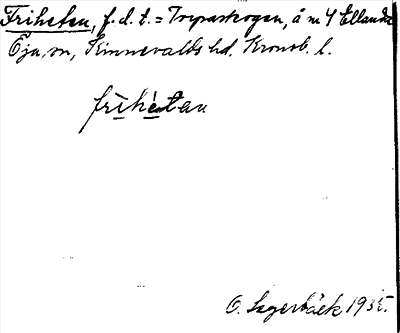 Friheten, f.d.t. = Torparskogen, å m 4 Ellanda
Öja sn, Kinnevalds hd. Kronob. l.
frihetan
O. Lagerbäck 1935.